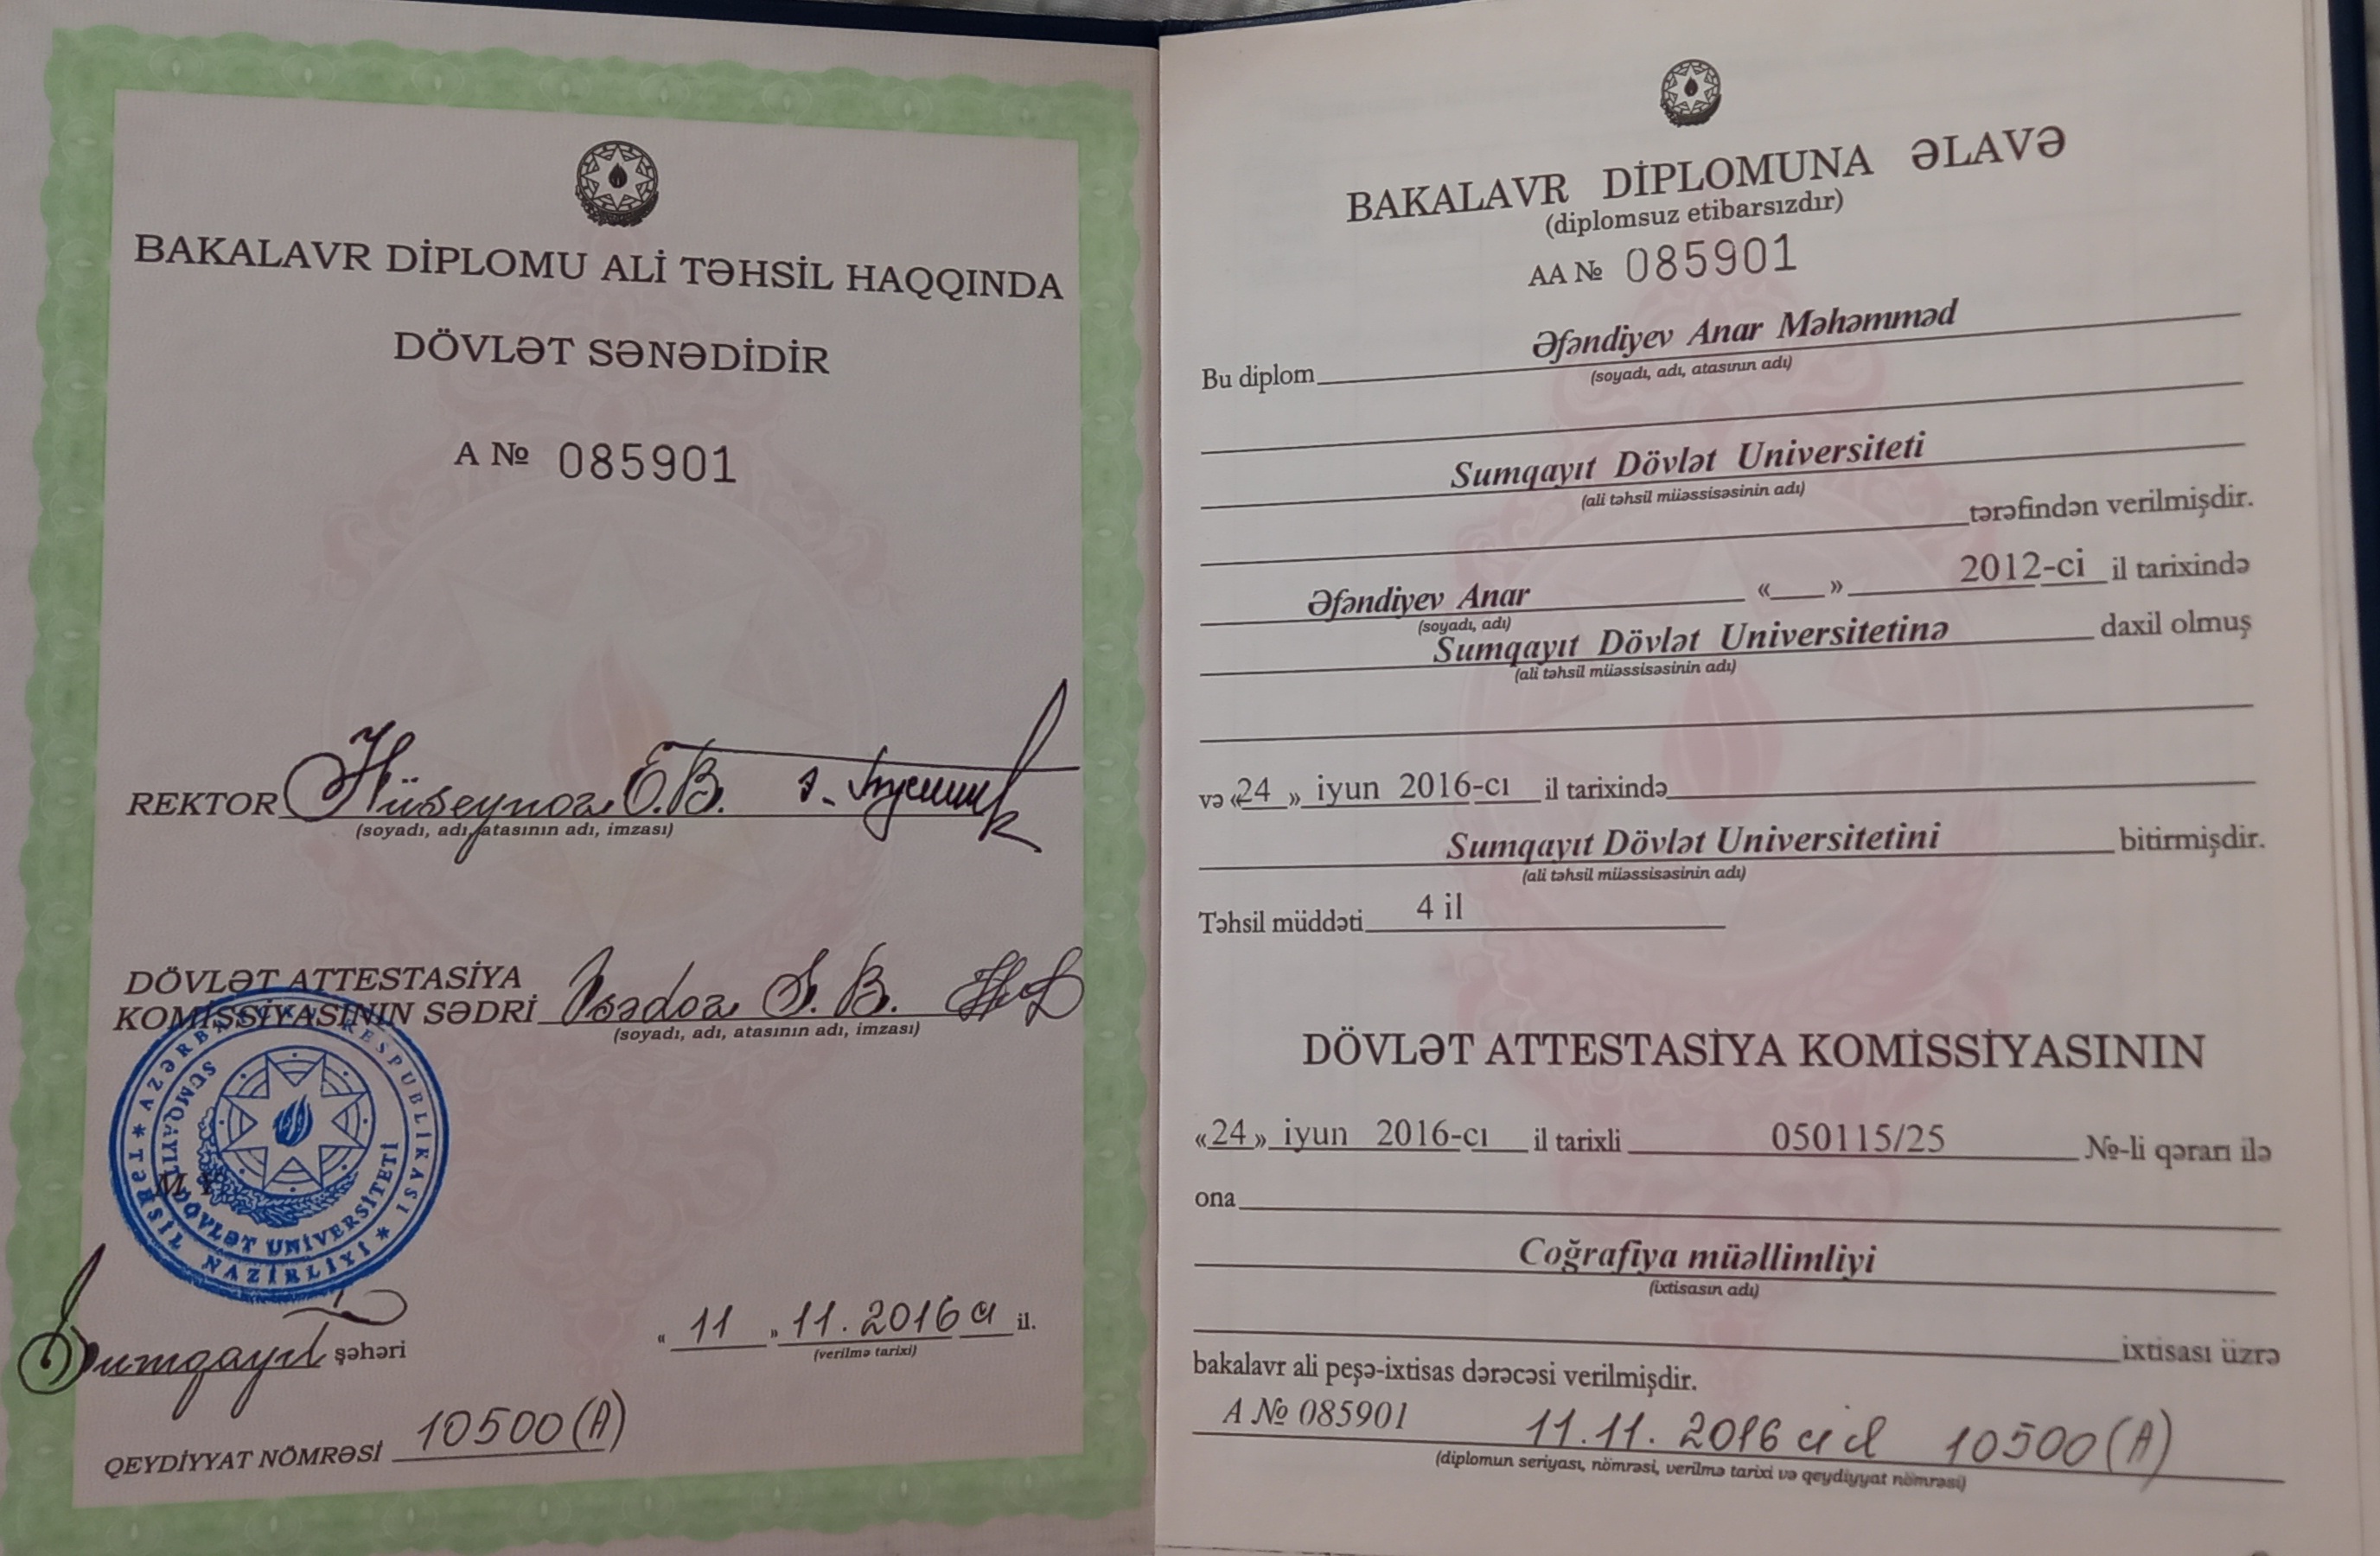 BAKALAVR DİPLOMU ALİ TƏHSİL HAQQINDA
DÖVLƏT SƏNƏDİDİR
A № 085901
REKTOR Hüseynov E.B.
(soyadı, adı, atasının adı, imzası)
DÖVLƏT ATTESTASİYA
KOMİSSİYASININ SƏDRİ B.
(soyadı, adı, atasının adı, imzası)
AZƏRBAYCAN RESPUBLİKASI * TƏHSİL NAZİRLİYİ *
SUMQAYIT DÖVLƏT UNİVERSİTETİ
M.Y
Sumqayıt şəhəri
« 11 » 11. 2016 cı il.
(verilmə tarixi)
QEYDİYYAT NÖMRƏSİ 10500 (A)
BAKALAVR DİPLOMUNA ƏLAVƏ
(diplomsuz etibarsızdır)
AA № 085901
Bu diplom Əfəndiyev Anar Məhəmməd
(soyadı, adı, atasının adı)
Sumqayıt Dövlət Universiteti
(ali təhsil müəssisəsinin adı)
tərəfindən verilmişdir.
Əfəndiyev Anar «___» 2012-ci il tarixində
(soyadı, adı)
Sumqayıt Dövlət Universitetinə daxil olmuş
(ali təhsil müəssisəsinin adı)
və «24 » iyun 2016-cı il tarixində
Sumqayıt Dövlət Universitetini bitirmişdir.
(ali təhsil müəssisəsinin adı)
Təhsil müddəti 4 il
DÖVLƏT ATTESTASİYA KOMİSSİYASININ
«24» iyun 2016-cı il tarixli 050115/25 №-li qərarı ilə
ona
Coğrafiya müəllimliyi
(ixtisasın adı)
ixtisası üzrə
bakalavr ali peşə-ixtisas dərəcəsi verilmişdir.
A № 085901 11.11. 2016 cı il 10500 (A)
(diplomun seriyası, nömrəsi, verilmə tarixi və qeydiyyat nömrəsi)